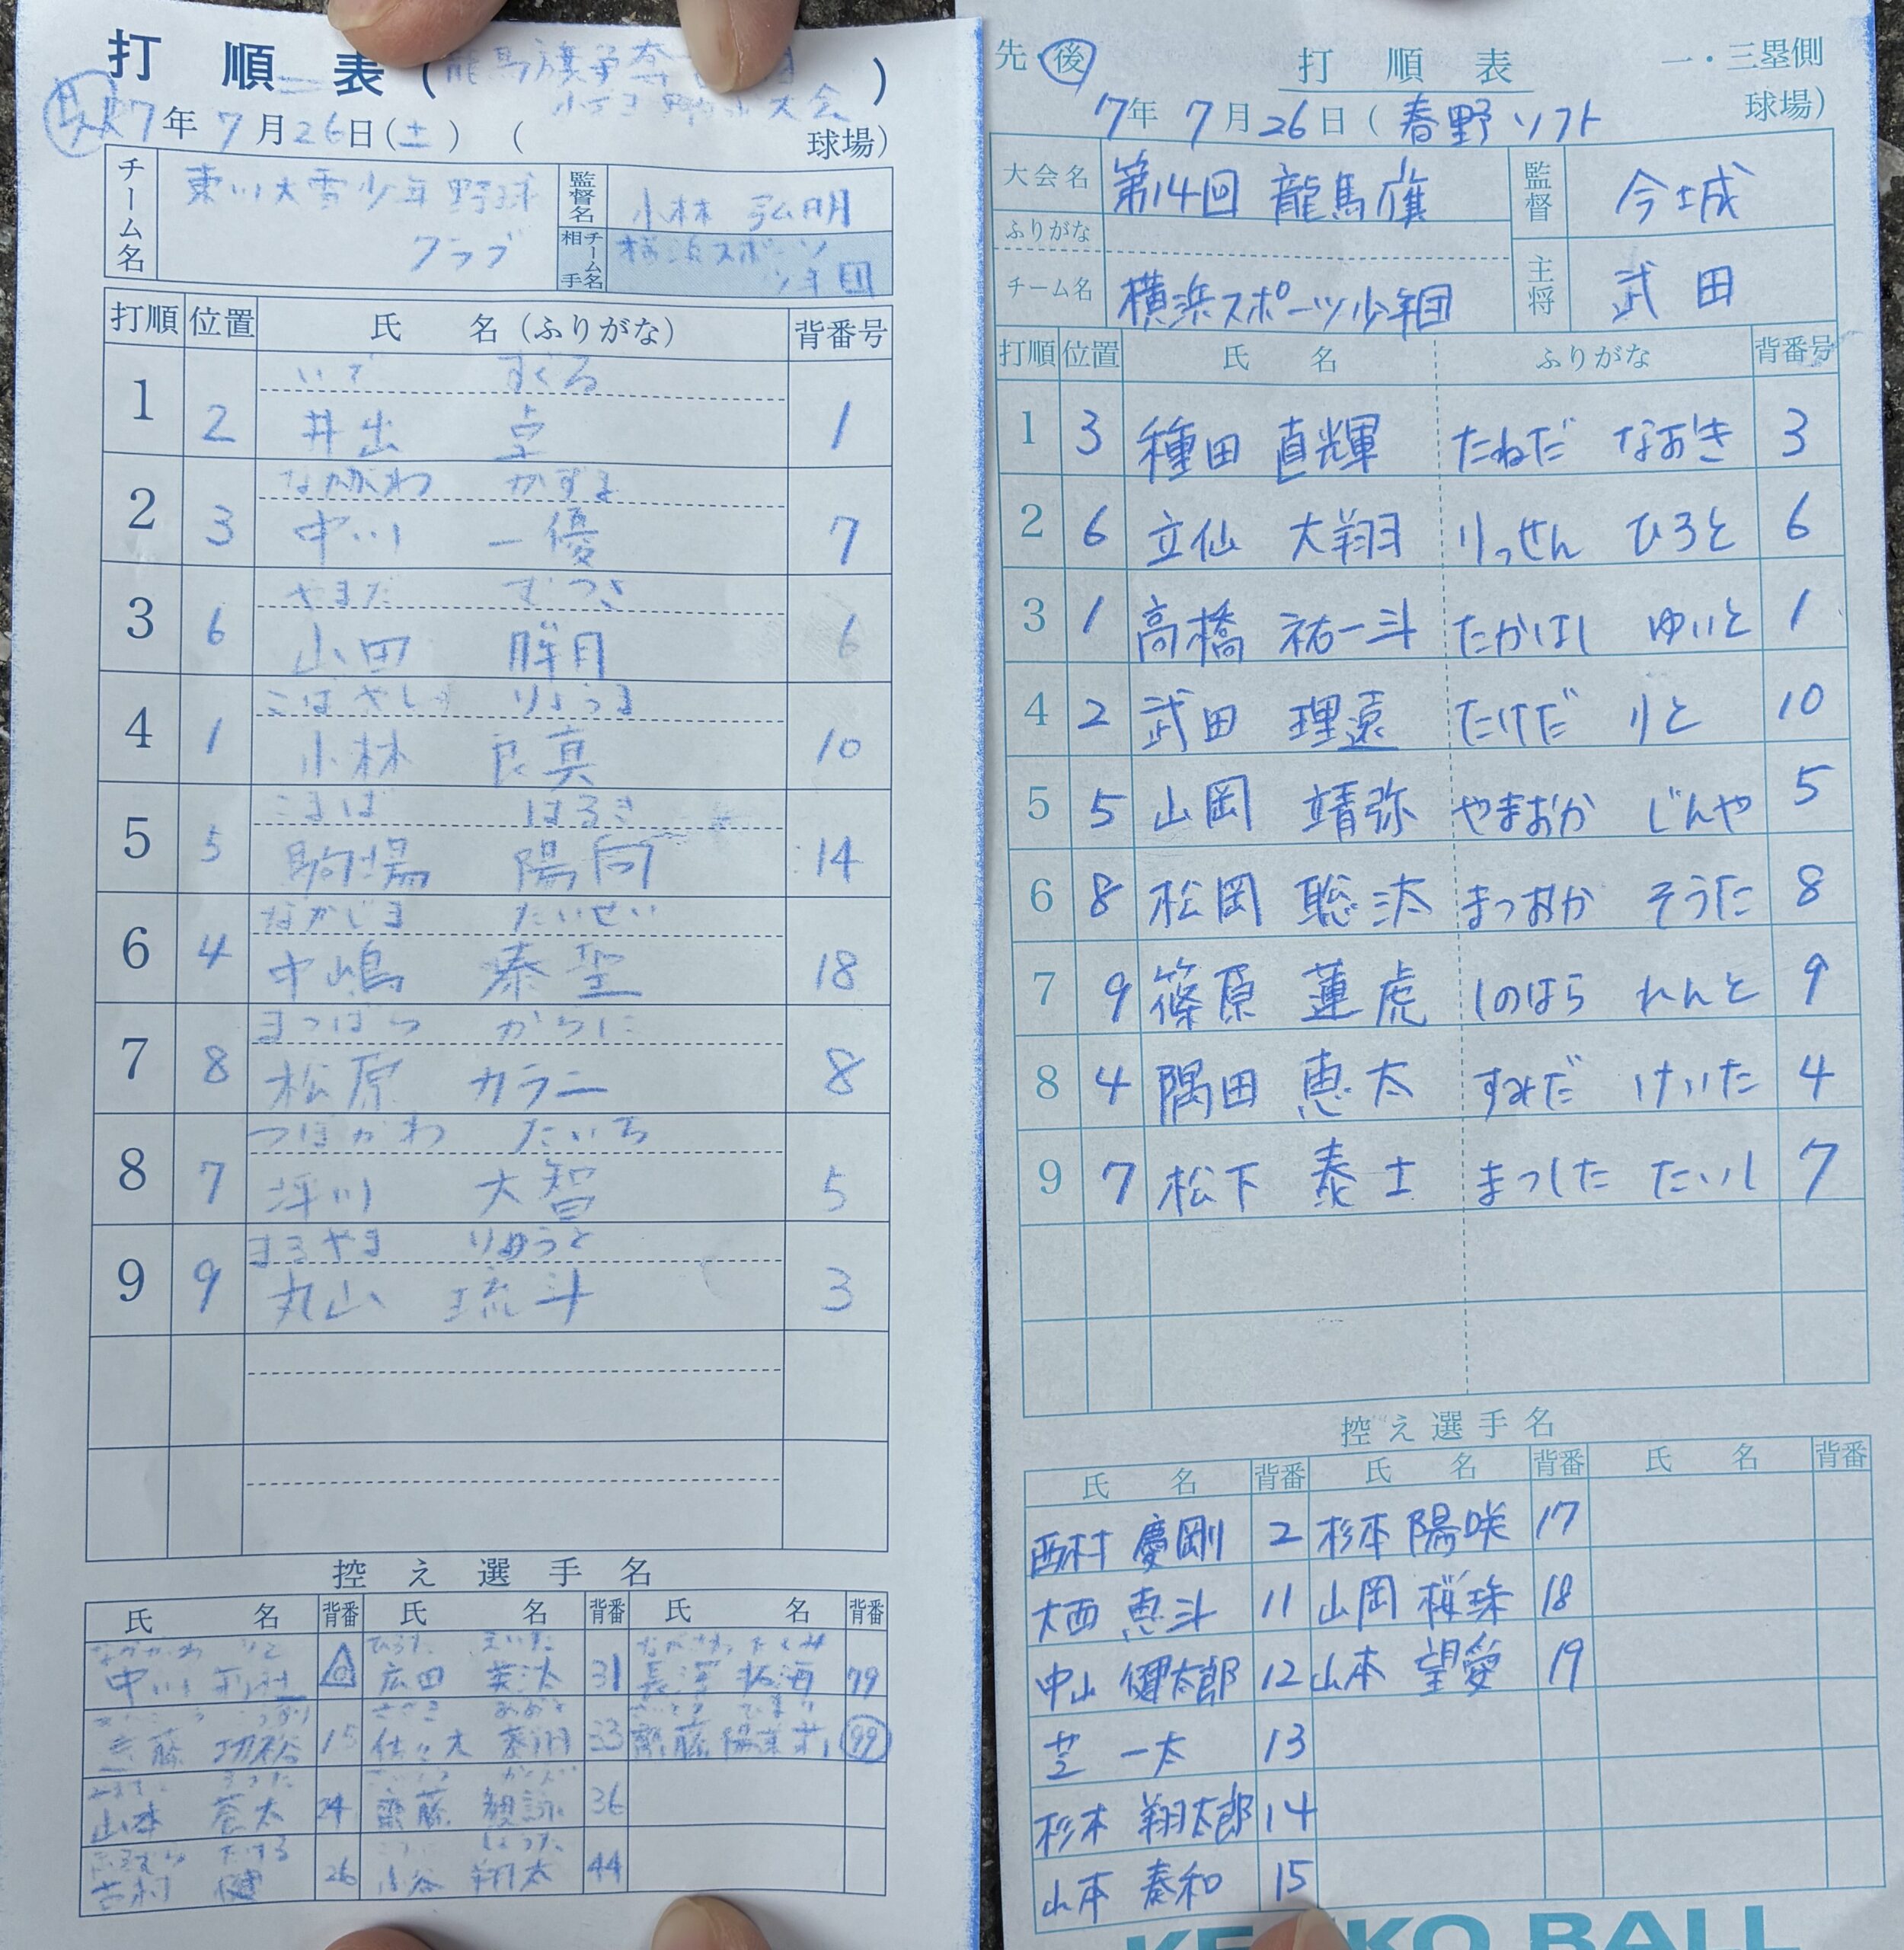 打順表( 龍馬旗争奪 )
小学生野球大会
7年7月26日(土) ( 球場)
チーム名 東川大雪少年野球クラブ
監督名 小林 弘明
相手チーム名 横浜スポーツ少年団
打順 位置 氏名(ふりがな) 背番号
いで すぐる
1 2 井出 卓 1
なかがわ かずま
2 3 中川 一優 7
やまだ むつき
3 6 山田 睦月 6
こばやし りょうま
4 1 小林 良真 10
こまば はるき
5 5 駒場 陽向 14
なかじま たいせい
6 4 中嶋 泰聖 18
まつばら からに
7 8 松原 カラニ 8
つぼかわ たいち
8 7 坪川 大智 5
まるやま りゅうと
9 9 丸山 琉斗 3
控え選手名
氏名 背番 氏名 背番 氏名 背番
中川 広田 英汰 31 長澤 拓海 79
藤 15 佐々木 33 齋藤 99
山本 蒼太 24 齋藤 36
吉村 健 26 小谷 翔太 44
先・後 打順表 一・三塁側
17年7月26日(春野ソフト 球場)
大会名 第14回 龍馬旗 監督 今城
ふりがな
チーム名 横浜スポーツ少年団 主将 武田
打順 位置 氏名 ふりがな 背番号
1 3 種田 直輝 たねだ なおき 3
2 6 立仙 大翔 りっせん ひろと 6
3 1 高橋 祐一斗 たかはし ゆいと 1
4 2 武田 理遠 たけだ りと 10
5 5 山岡 靖弥 やまおか じんや 5
6 8 松岡 聡汰 まつおか そうた 8
7 9 篠原 蓮虎 しのはら れんと 9
8 4 隅田 恵太 すみだ けいた 4
9 7 松下 泰士 まつした たいし 7
控え選手名
氏名 背番 氏名 背番 氏名 背番
西村 慶剛 2 杉本 陽咲 17
大西 恵斗 11 山岡 桜珠 18
中山 健太郎 12 山本 望愛 19
芝 一太 13
杉本 翔太郎 14
山本 泰和 15
KENKO BALL